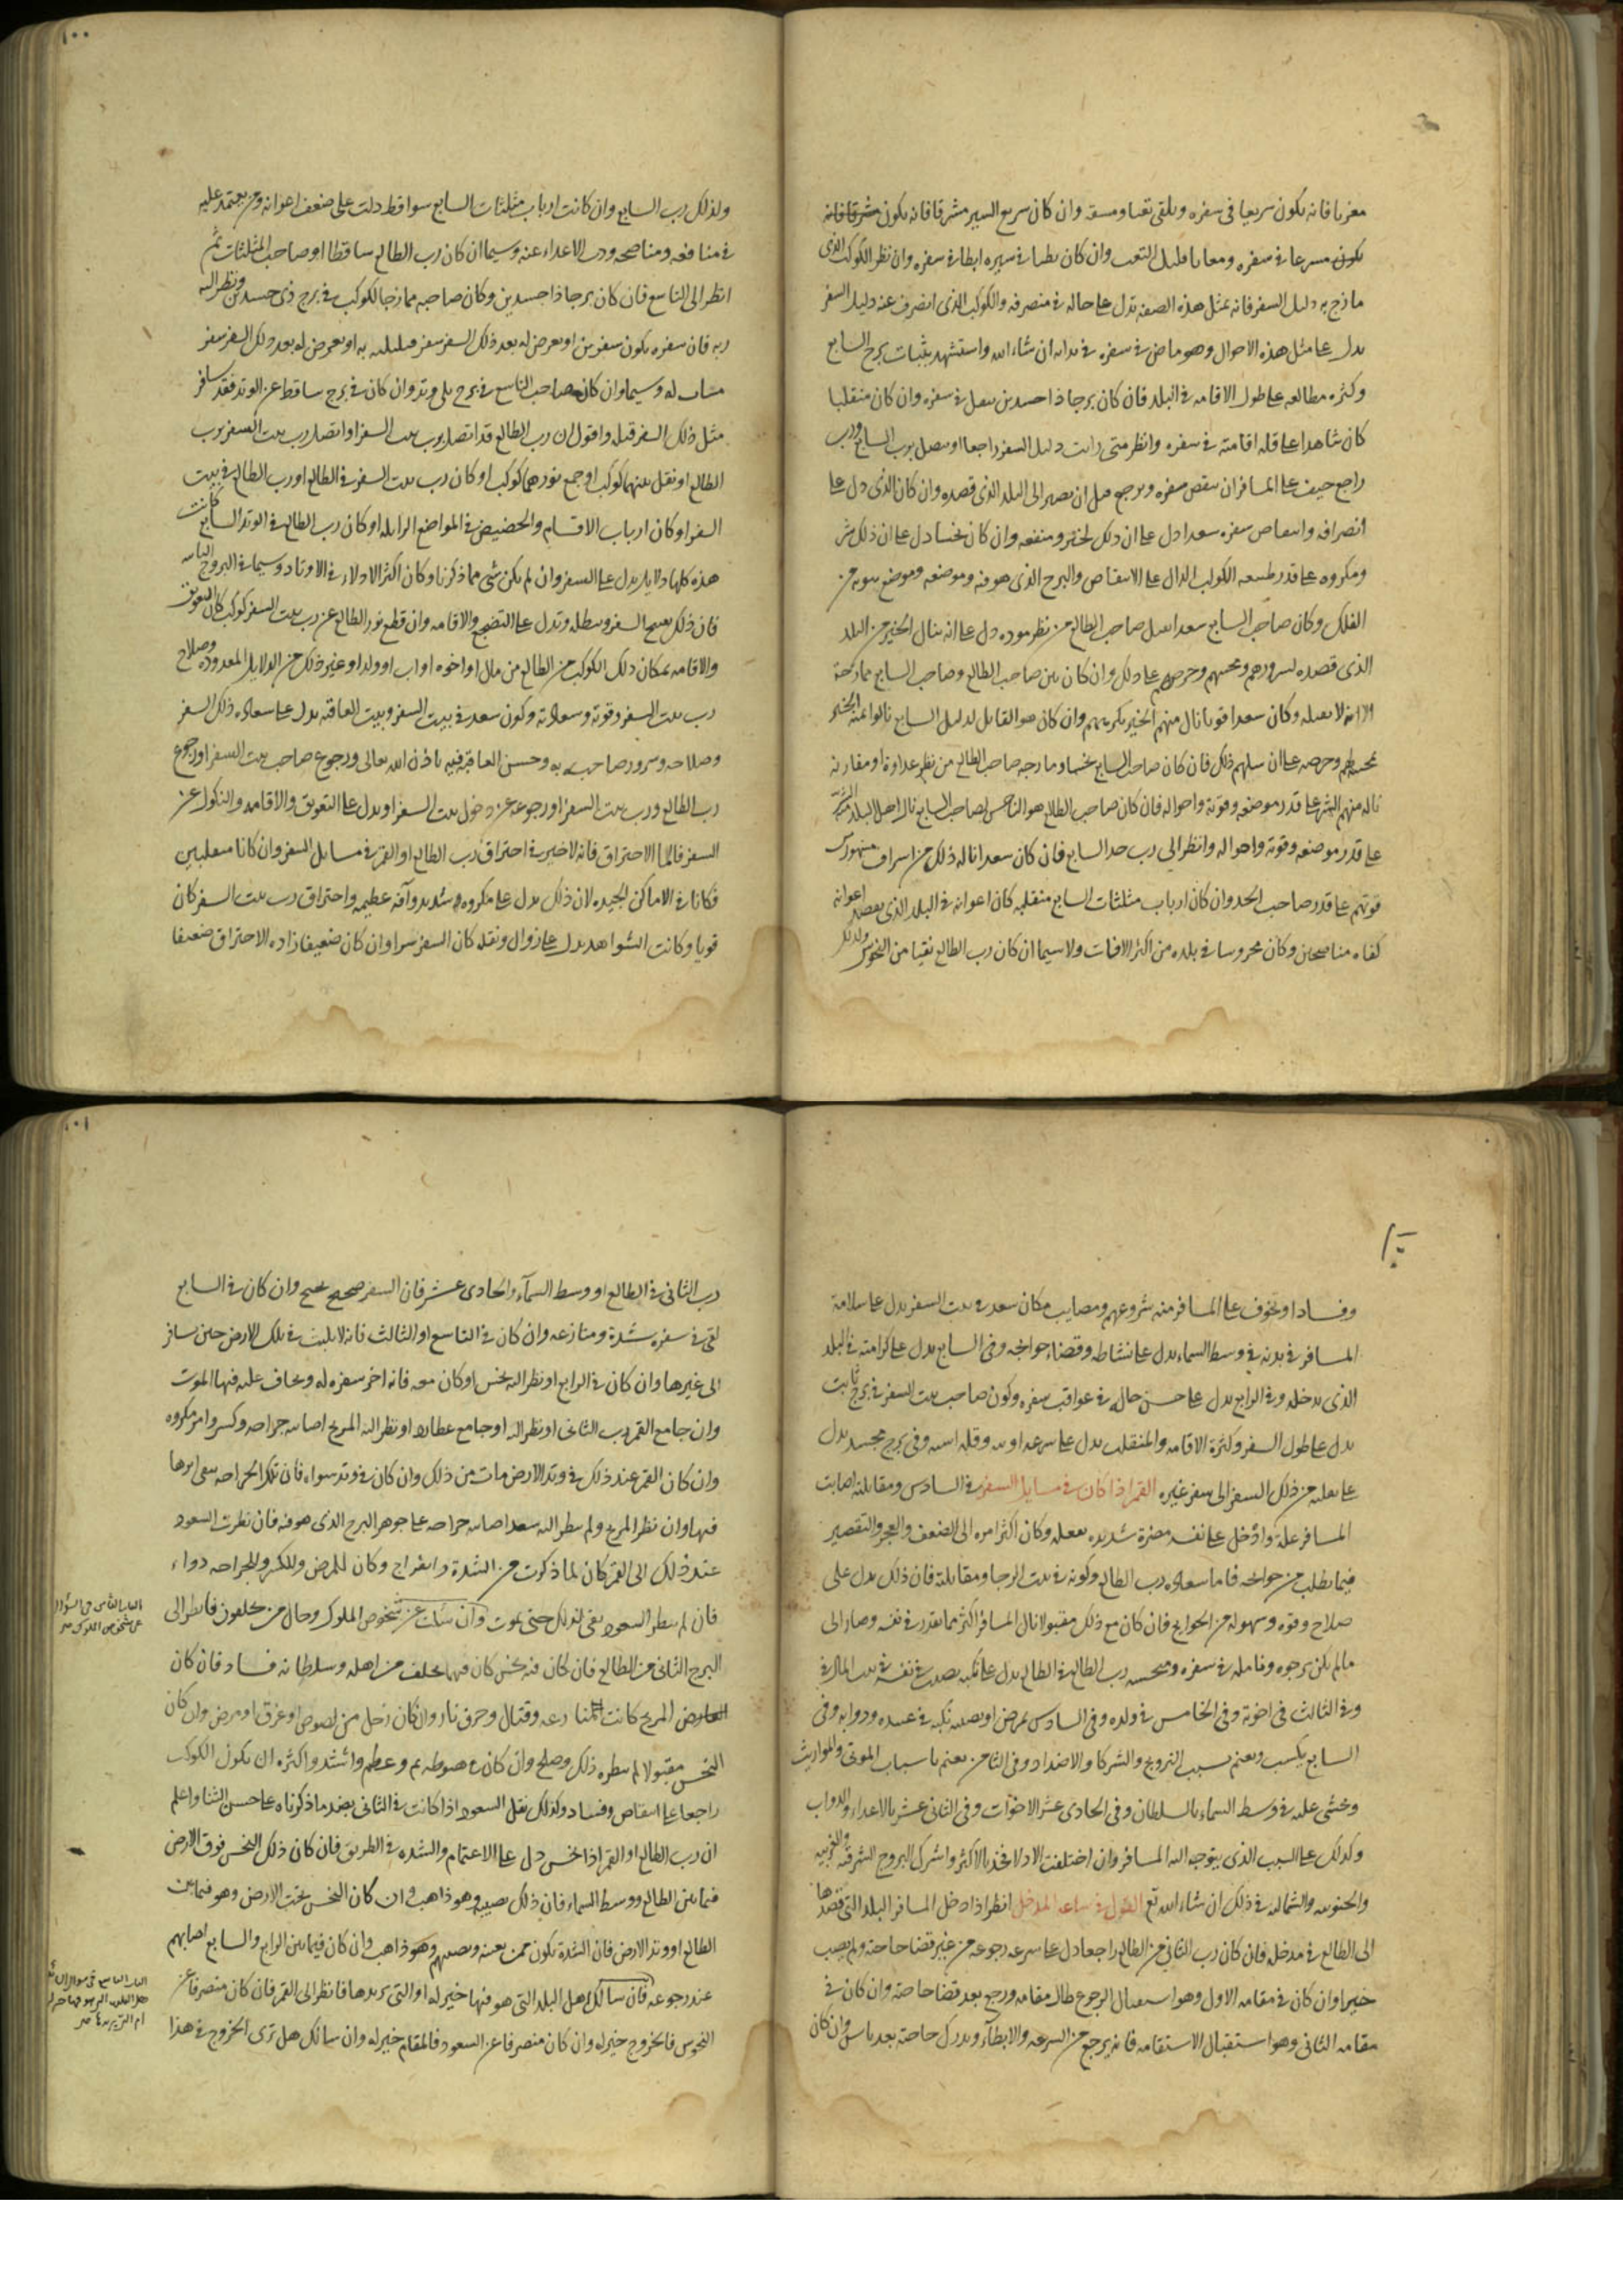 مغربا فانه يكون سريعا فى سفره ويلقى تعبا ومشقة وان كان سريع السير مشرقا فانه يكون مشرقا فانه
يكون مسرعا فى سفره ومعانا قليل التعب وان كان بطيا فى سيره ابطا فى سفره وان نظر الكوكب الذى
مازج به دليل السفر فانه بمثل هذه الصفة تدل على حاله فى منصرفه والكوكب الذى انصرف عنه دليل السفر
يدل على مثل هذه الاحوال وهو ماض فى سفره فى بدايه ان شاء الله واستشهد بثبات برج السابع
وكثره مطالعه على طول الاقامه فى البلد فان كان برجا ذا جسدين فى سفره وان كان منقلبا
كان شاهدا على قله اقامته فى سفره وانظر متى رايت دليل السفر راجعا او يتصل برب السابع ورب
راجع خيف على المسافر ان ينقص سفره ويرجع قبل ان يصير الى البلد الذى قصده وان كان الذى دل على
انصرافه وانتقاص سفره سعدا دل على ان ذلك لخير ومنفعه وان كان نحسا دل على ان ذلك شر
ومكروه على قدر طبيعه الكوكب الدال على الانتقاص والبرج الذى هو فيه وموضعه وموضع بيوته من
الفلك وكان صاحب السابع سعدا اتصل صاحب الطالع من نظر موده دل على انه ينال الخير من البلد
الذى قصده بسرورهم ومحبتهم وحرصهم على ذلك وان كان بين صاحب الطالع وصاحب السابع ممازجة
الا انه لا يقبله وكان سعدا قويا نال منهم الخير بكرههم وان كان هو القابل لدليل السابع نالوا منه الخير
بمحبتهم وحرصه على ان ينيلهم ذلك فان كان صاحب السابع نحسا ومازجه صاحب الطالع من نظر عداوة او مقارنه
ناله منهم الشر على قدر موضعه وقوته واحواله فان كان صاحب الطالع هو الناحس لصاحب السابع نال اهل البلد
على قدر موضعه وقوته واحواله وانظر الى رب حد السابع فان كان سعدا ناله ذلك من اشراف
قوتهم على قدر صاحب الحد وان كان ارباب مثلثات السابع متقلبه كان اعوانه فى البلد الذى يقصد اعوانه
كفاه مناصحين وكان محروسا فى بلده من اكثر الافات ولا سيما ان كان رب الطالع نقيا من النحوس وكذلك
ولذلك رب السابع وان كانت ارباب مثلثات السابع سواقط دلت على ضعف اعوانه ومن يعتمد عليه
فى منافعه ومناصحه ودب الاعداء عنه وسيما ان كان رب الطالع ساقطا او صاحب المثلثات ثم
انظر الى التاسع فان كان برجا ذا جسدين وكان صاحبه ممازجا لكوكب فى برج ذى جسدين ونظر اليه
ربه فان سفره يكون سفرين او يعرض له بعد ذلك السفر سفر او يعرض له بعد ذلك السفر سفر
مشابه له وسيما وان كان صاحب التاسع فى برج يلى وتد وان كان فى برج ساقط عن الوتد فقد سافر
مثل ذلك السفر قبله واقول ان رب الطالع قد اتصل برب بيت السفر او اتصل رب بيت السفر برب
الطالع او نقل بينهما كوكب او جمع نورهما كوكب او كان رب بيت السفر فى الطالع او رب الطالع فى بيت
السفر او كان ارباب الاقسام والحضيض فى المواضع الزايله او كان رب الطالع فى الوتد السابع كانت
هذه كلها دلايل يدل على السفر وان لم يكن شى مما ذكرنا وكان اكثر الادلاء فى الاوتاد وسيما فى البروج الثابته
فان ذلك يقبح السفر ويبطله وتدل على التضجع والاقامه وان قطع نور الطالع عن رب بيت السفر كوكب كان التعويق
والاقامه بمكان ذلك الكوكب من الطالع من مال او اخوه او اب او ولد او غير ذلك من الدلايل المعدوده وصلاح
رب بيت السفر وقوته وسعادته وكون سعد فى بيت السفر وبيت العاقبه يدل على سعاده ذلك السفر
وصلاحه وسرور صاحبه به وحسن العاقبة فيه باذن الله تعالى ورجوع صاحب بيت السفر او رجوع
رب الطالع ورب بيت السفر او رجوعه عن دخول بيت السفر او يدل على التعويق والاقامه والنكول عن
السفر فاما الاحتراق فانه لا خير فى احتراق رب الطالع او القمر فى مسايل السفر وان كانا متقلبين
فكانا فى الاماكن الجيده لان ذلك يدل على مكروه شديد وآفه عظيمه واحتراق رب بيت السفر كان
قويا وكانت الشواهد يدل على زوال ونقله كان السفر سرا وان كان ضعيفا زاده الاحتراق ضعيفا
وفسادا ويخوف على المسافر منه شر وغم ومصايب مكان سعد فى بيت السفر يدل على سلامة
المسافر فى بدنه فى وسط السماء يدل على نشاطه وقضاء حوائجه وفى السابع يدل على كرامته فى البلد
الذى يدخله وفى الرابع يدل على حسن حاله فى عواقب سفره وكون صاحب بيت السفر فى برج ثابت
يدل على طول السفر وكثرة الاقامه والمنقلب يدل على سرعه وفى برج مجسد يدل
على نقلته من ذلك السفر الى سفر غيره القمر اذا كان فى مسايل السفر فى السادس ومقابلته اصابت
المسافر علة وادخل على نفسه مضرة شديده بفعله وكان اكثر امره الى الضعف والعجز والتقصير
فيما يطلب من حوائجه فاما سعاده رب الطالع وكونه فى بيت الرجا ومقابلته فان ذلك يدل على
صلاح وقوه وسهوله من الحوايج فان كان مع ذلك مقبولا نال المسافر اكثر مما يقدر فى نفسه وصار الى
ما لم يكن يرجوه ويامله فى سفره ومنحسه رب الطالع فى الطالع يدل على نكبه تصيب فى نفسه فى بيت المال فى
وفى الثالث فى اخوته وفى الخامس فى ولده وفى السادس يمرض او يصيبه نكبه فى عبيده ودوابه وفى
السابع يكسب ويغنم بسبب التزويج والشركا والاضداد وفى الثامن يغنم باسباب الموتى والمواريث
وخشى عليه فى وسط السماء بالسلطان وفى الحادى عشر الاخوات وفى الثانى عشر بالاعداء والدواب
وكذلك على السبب الذى يتوجه اليه المسافر وان اختلفت الادلا فخذ بالاكثر واشرك البروج الشرقيه والغربيه
والجنوبيه والشماليه فى ذلك ان شاء الله تع القول فى ساعه المدخل انظر اذا دخل المسافر البلد التى قصدها
الى الطالع فى مدخله فان كان رب الثانى من الطالع راجعا دل على سرعه رجوعه من غير قضا حاجته ولم يصب
خيرا وان كان فى مقامه الاول وهو استقبال الرجوع طال مقامه ورجع بعد قضا حاجته وان كان فى
مقامه الثانى وهو استقبال الاستقامه فانه يرجع من السرعه والابطآء ويدرك حاجته بعد ياس وان كان
رب الثانى فى الطالع او وسط السمآء والحادى عشر فان السفر صحيح نجيح وان كان فى السابع
لقى فى سفره شدة ومنازعه وان كان فى التاسع او الثالث فانه لا يلبث فى تلك الارض حين سافر
الى غيرها وان كان فى الرابع او نظر اليه نحس او كان معه فانه اخر سفره له ويخاف عليه فيها الموت
وان جامع القمر رب الثانى او نظر اليه او جامع عطارد او نظر اليه المريخ اصابه جراحه وكسر وامر مكروه
وان كان القمر عند ذلك فى وتد الارض مات من ذلك وان كان فى وتد سواه فان تلك الجراحه يبقى اثرها
فيها وان نظر المريخ ولم ينظر اليه سعد اصابه جراحه على جوهر البرج الذى هو فيه فان نظرت السعود
عند ذلك الى القمر كان لما ذكرت من الشدة وانفراج وكان للمرض وللكسر وللجراحه دواء
فان لم ينظر السعود بقى لذلك حتى يموت وان سئلت عن شخوص الملوك وحال من يخلفون فانظر الى
البرج الثانى من الطالع فان كان فيه نحس كان فيما يخلف من اهله وسلطانه فساد فان كان
المريخ كانت المنازعه وقتال وحرق نار وان كان زحل من لصوص او غرق او مرض وان كان
النحس مقبولا لم يضره ذلك وصلح وان كان فى هبوطه يم وعظم واشتد واكثره ان يكون الكوكب
راجعا على انتقاص وفساد وكذلك نقل السعود اذا كانت فى الثانى بضد ما ذكرناه على حسن الثنا واعلم
ان رب الطالع او القمر اذا نحس دل على الاغتمام والشده فى الطريق فان كان ذلك النحس فوق الارض
فيما بين الطالع ووسط السماء فان ذلك يصيبه وهو ذاهب وان كان النحس تحت الارض وهو فيما بين
الطالع او وتد الارض فان الشدة تكون ممن يعينه ويصيبهم وهو ذاهب وان كان فيما بين الرابع والسابع اصابهم
عند رجوعه فان سالك اهل البلد التى هو فيها خير له او التى يريدها فانظر الى القمر فان كان منصرفا عن
النحوس فالخروج خير له وان كان منصرفا عن السعود فالمقام خير له وان سالك هل ترى الخروج فى هذا